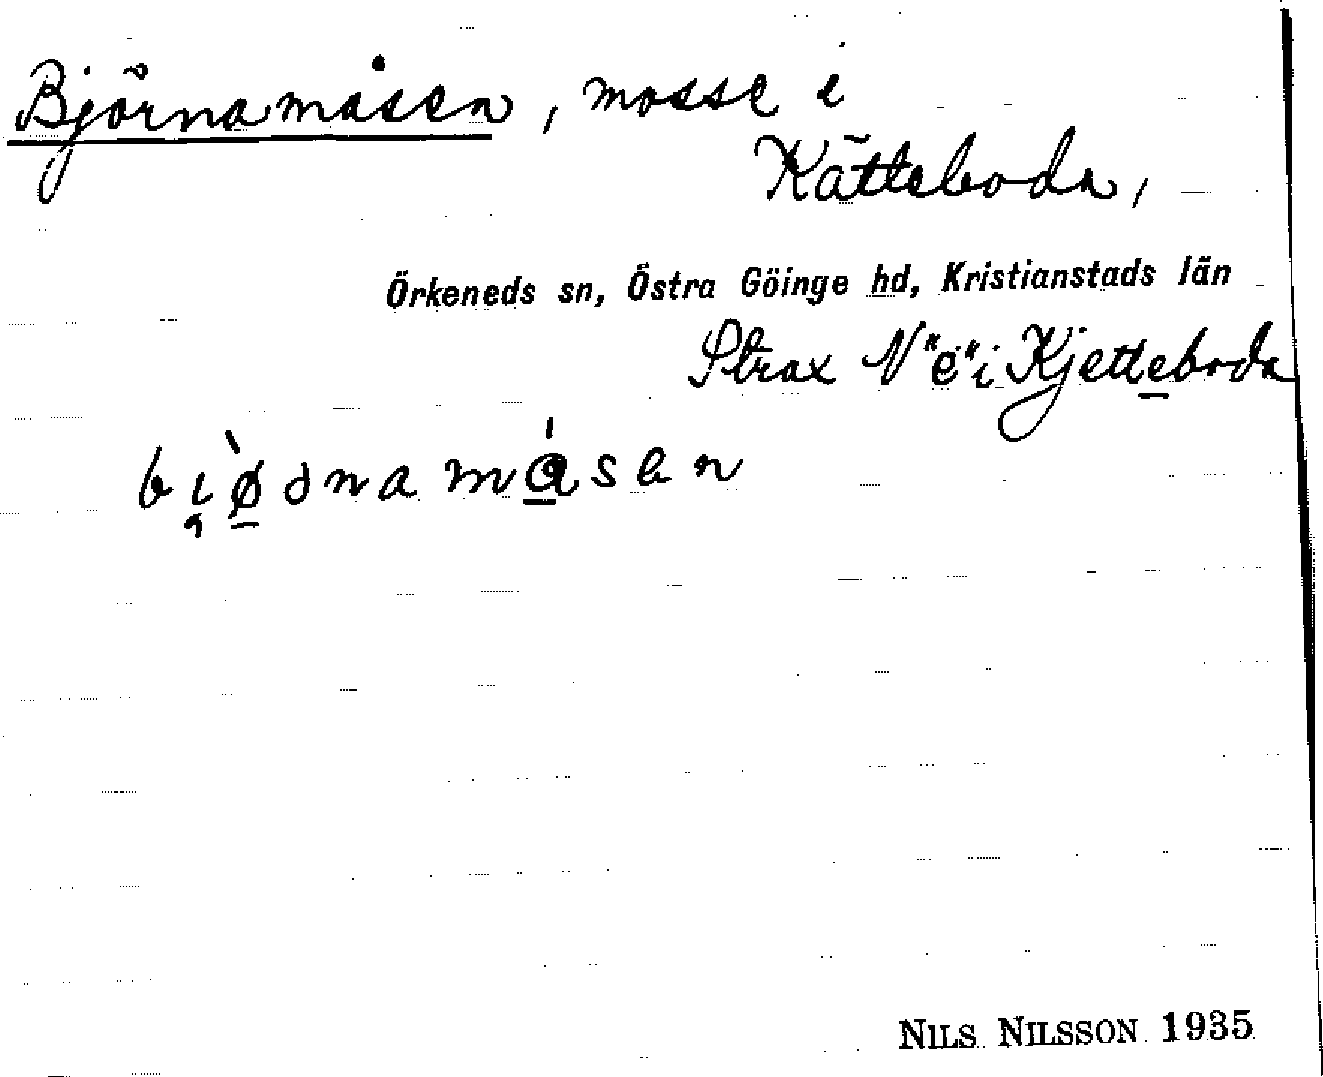 Björnamåsen, mosse i
Kätteboda,
Örkeneds sn, Östra Göinge hd, Kristianstads län
Strax N "e" i Kjetteboda
NILS NILSSON 1935